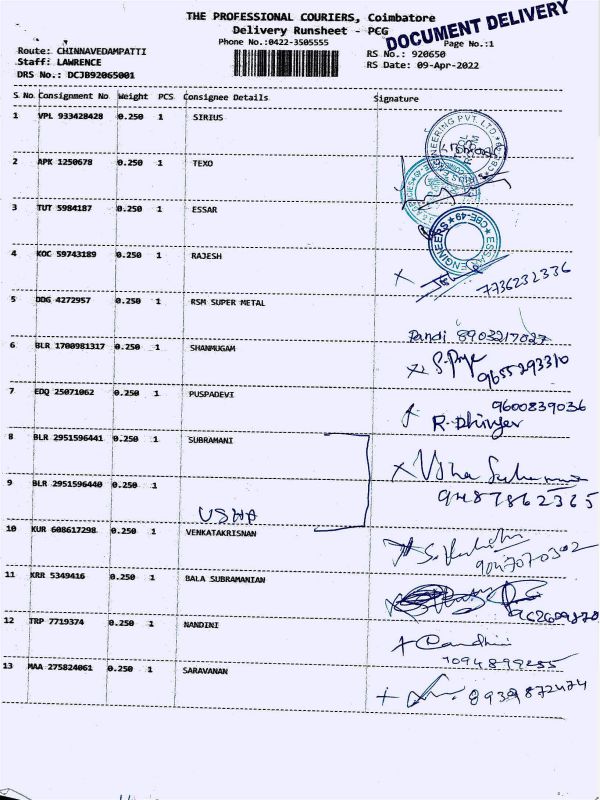 THE PROFESSIONAL COURIERS, Coimbatore
Delivery Runsheet - PCG
DOCUMENT DELIVERY
Phone No.:0422-3505555
Page No.:1
Route: CHINNAVEDAMPATTI
RS No.: 920650
Staff: LAWRENCE
RS Date: 09-Apr-2022
DRS No.: DCJB92065001
S No. Consignment No Weight PCS Consignee Details Signature
1 VPL 933428428 0.250 1 SIRIUS
ENGINEERING PVT. LTD
2 APK 1250678 0.250 1 TEXO
3 TUT 5984187 0.250 1 ESSAR
ESSAR ENGINEERS CBE-49
4 KOC 59743189 0.250 1 RAJESH
7736232336
5 DDG 4272957 0.250 1 RSM SUPER METAL
Pandi 8903217027
6 BLR 1700981317 0.250 1 SHANMUGAM
9655293310
7 EDQ 25071062 0.250 1 PUSPADEVI
9600839036
8 BLR 2951596441 0.250 1 SUBRAMANI
9 BLR 2951596440 0.250 1
9487862365
USHA
10 KUR 608617298 0.250 1 VENKATAKRISNAN
9047070302
11 KRR 5349416 0.250 1 BALA SUBRAMANIAN
12 TRP 7719374 0.250 1 NANDINI
13 MAA 275824061 0.250 1 SARAVANAN
8939872474